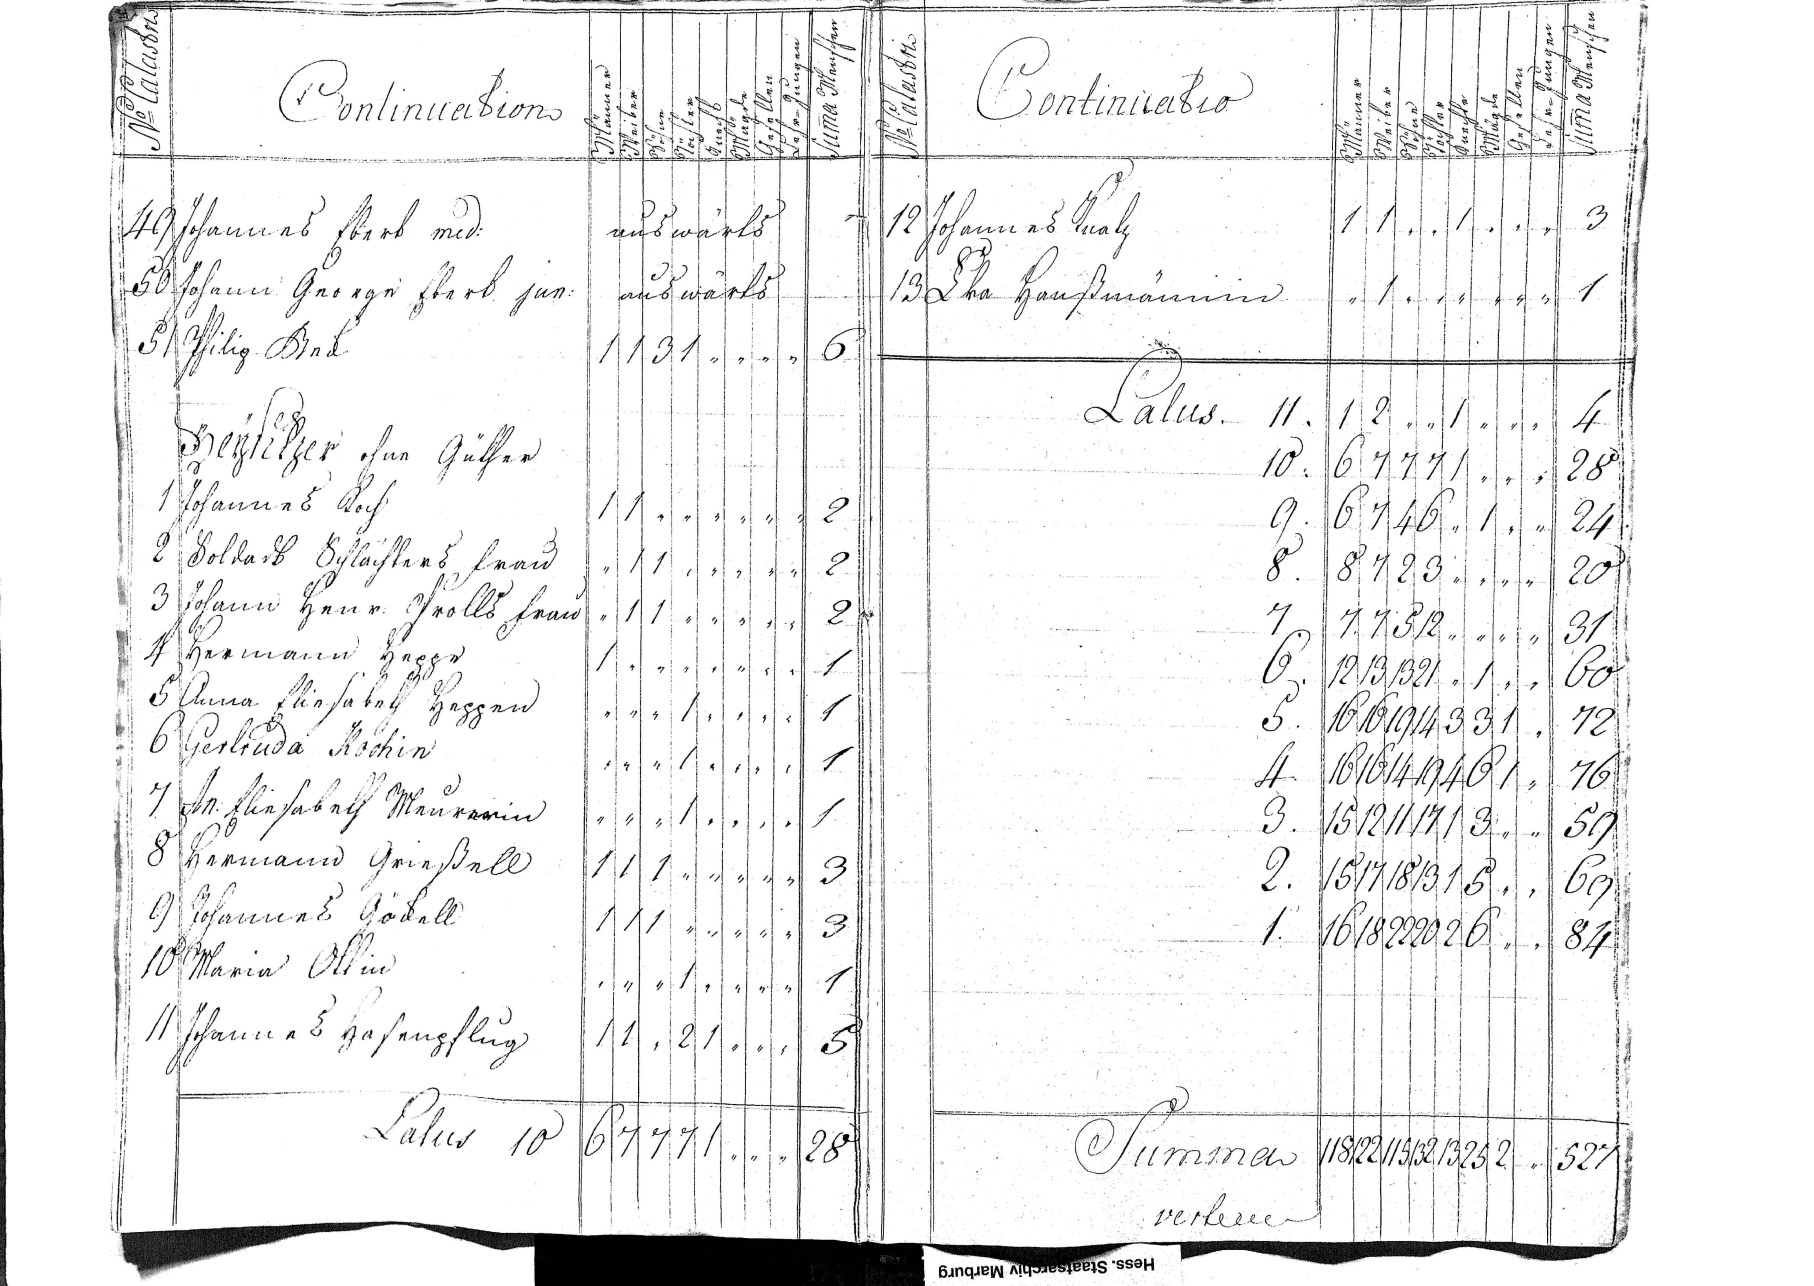 No Catastri
Continuation
Männer
Weiber
Söhne
Töchter
Knecht
Mägde
Gesellen
Lehr-Jungen
Suma Menschen
49 Johannes Eberb auswärts -
50 Johann George Eberb jun: auswärts
51 Philip 1 1 3 1 „ „ „ „ 6
Beysitzer ohne Güther
1 Johannes Koch 1 1 „ „ „ „ „ „ 2
2 Soldadt Schlächters frau „ 1 1 „ „ „ „ „ 2
3 Johann Henr: frau „ 1 1 „ „ „ „ „ 2
4 Hermann Heppe 1 „ „ „ „ „ „ „ 1
5 Anna Eliesabeth Heppen „ „ „ 1 „ „ „ „ 1
6 Gertruda Kochin „ „ „ 1 „ „ „ „ 1
7 An: Eliesabeth Meurerin „ „ „ 1 „ „ „ „ 1
8 Hermann Grießell 1 1 1 „ „ „ „ „ 3
9 Johannes Göbell 1 1 1 „ „ „ „ „ 3
10 Maria Ottin „ „ „ 1 „ „ „ „ 1
11 Johannes Hasenpflug 1 1 „ 2 1 „ „ „ 5
Latus 10 6 7 7 7 1 „ „ „ 28
No Catastri
Continuatio
Männer
Weiber
Söhne
Töchter
Knecht
Mägde
Gesellen
Lehr-Jungen
Suma Menschen
12 Johannes 1 1 „ „ 1 „ „ „ 3
13 Eva Haußmännin „ 1 „ „ „ „ „ „ 1
Latus. 11. 1 2 „ „ 1 „ „ „ 4
10. 6 7 7 7 1 „ „ „ 28
9. 6 7 4 6 „ 1 „ „ 24
8. 8 7 2 3 „ „ „ „ 20
7 7 7 5 12 „ „ „ „ 31
6. 12 13 13 21 „ 1 „ „ 60
5. 16 16 19 14 3 3 1 „ 72
4. 16 16 14 19 4 6 1 „ 76
3. 15 12 11 17 1 3 „ „ 59
2. 15 17 18 13 1 5 „ „ 69
1. 16 18 22 20 2 6 „ „ 84
Summa 118 122 115 132 13 25 2 „ 527
Hess. Staatsarchiv Marburg